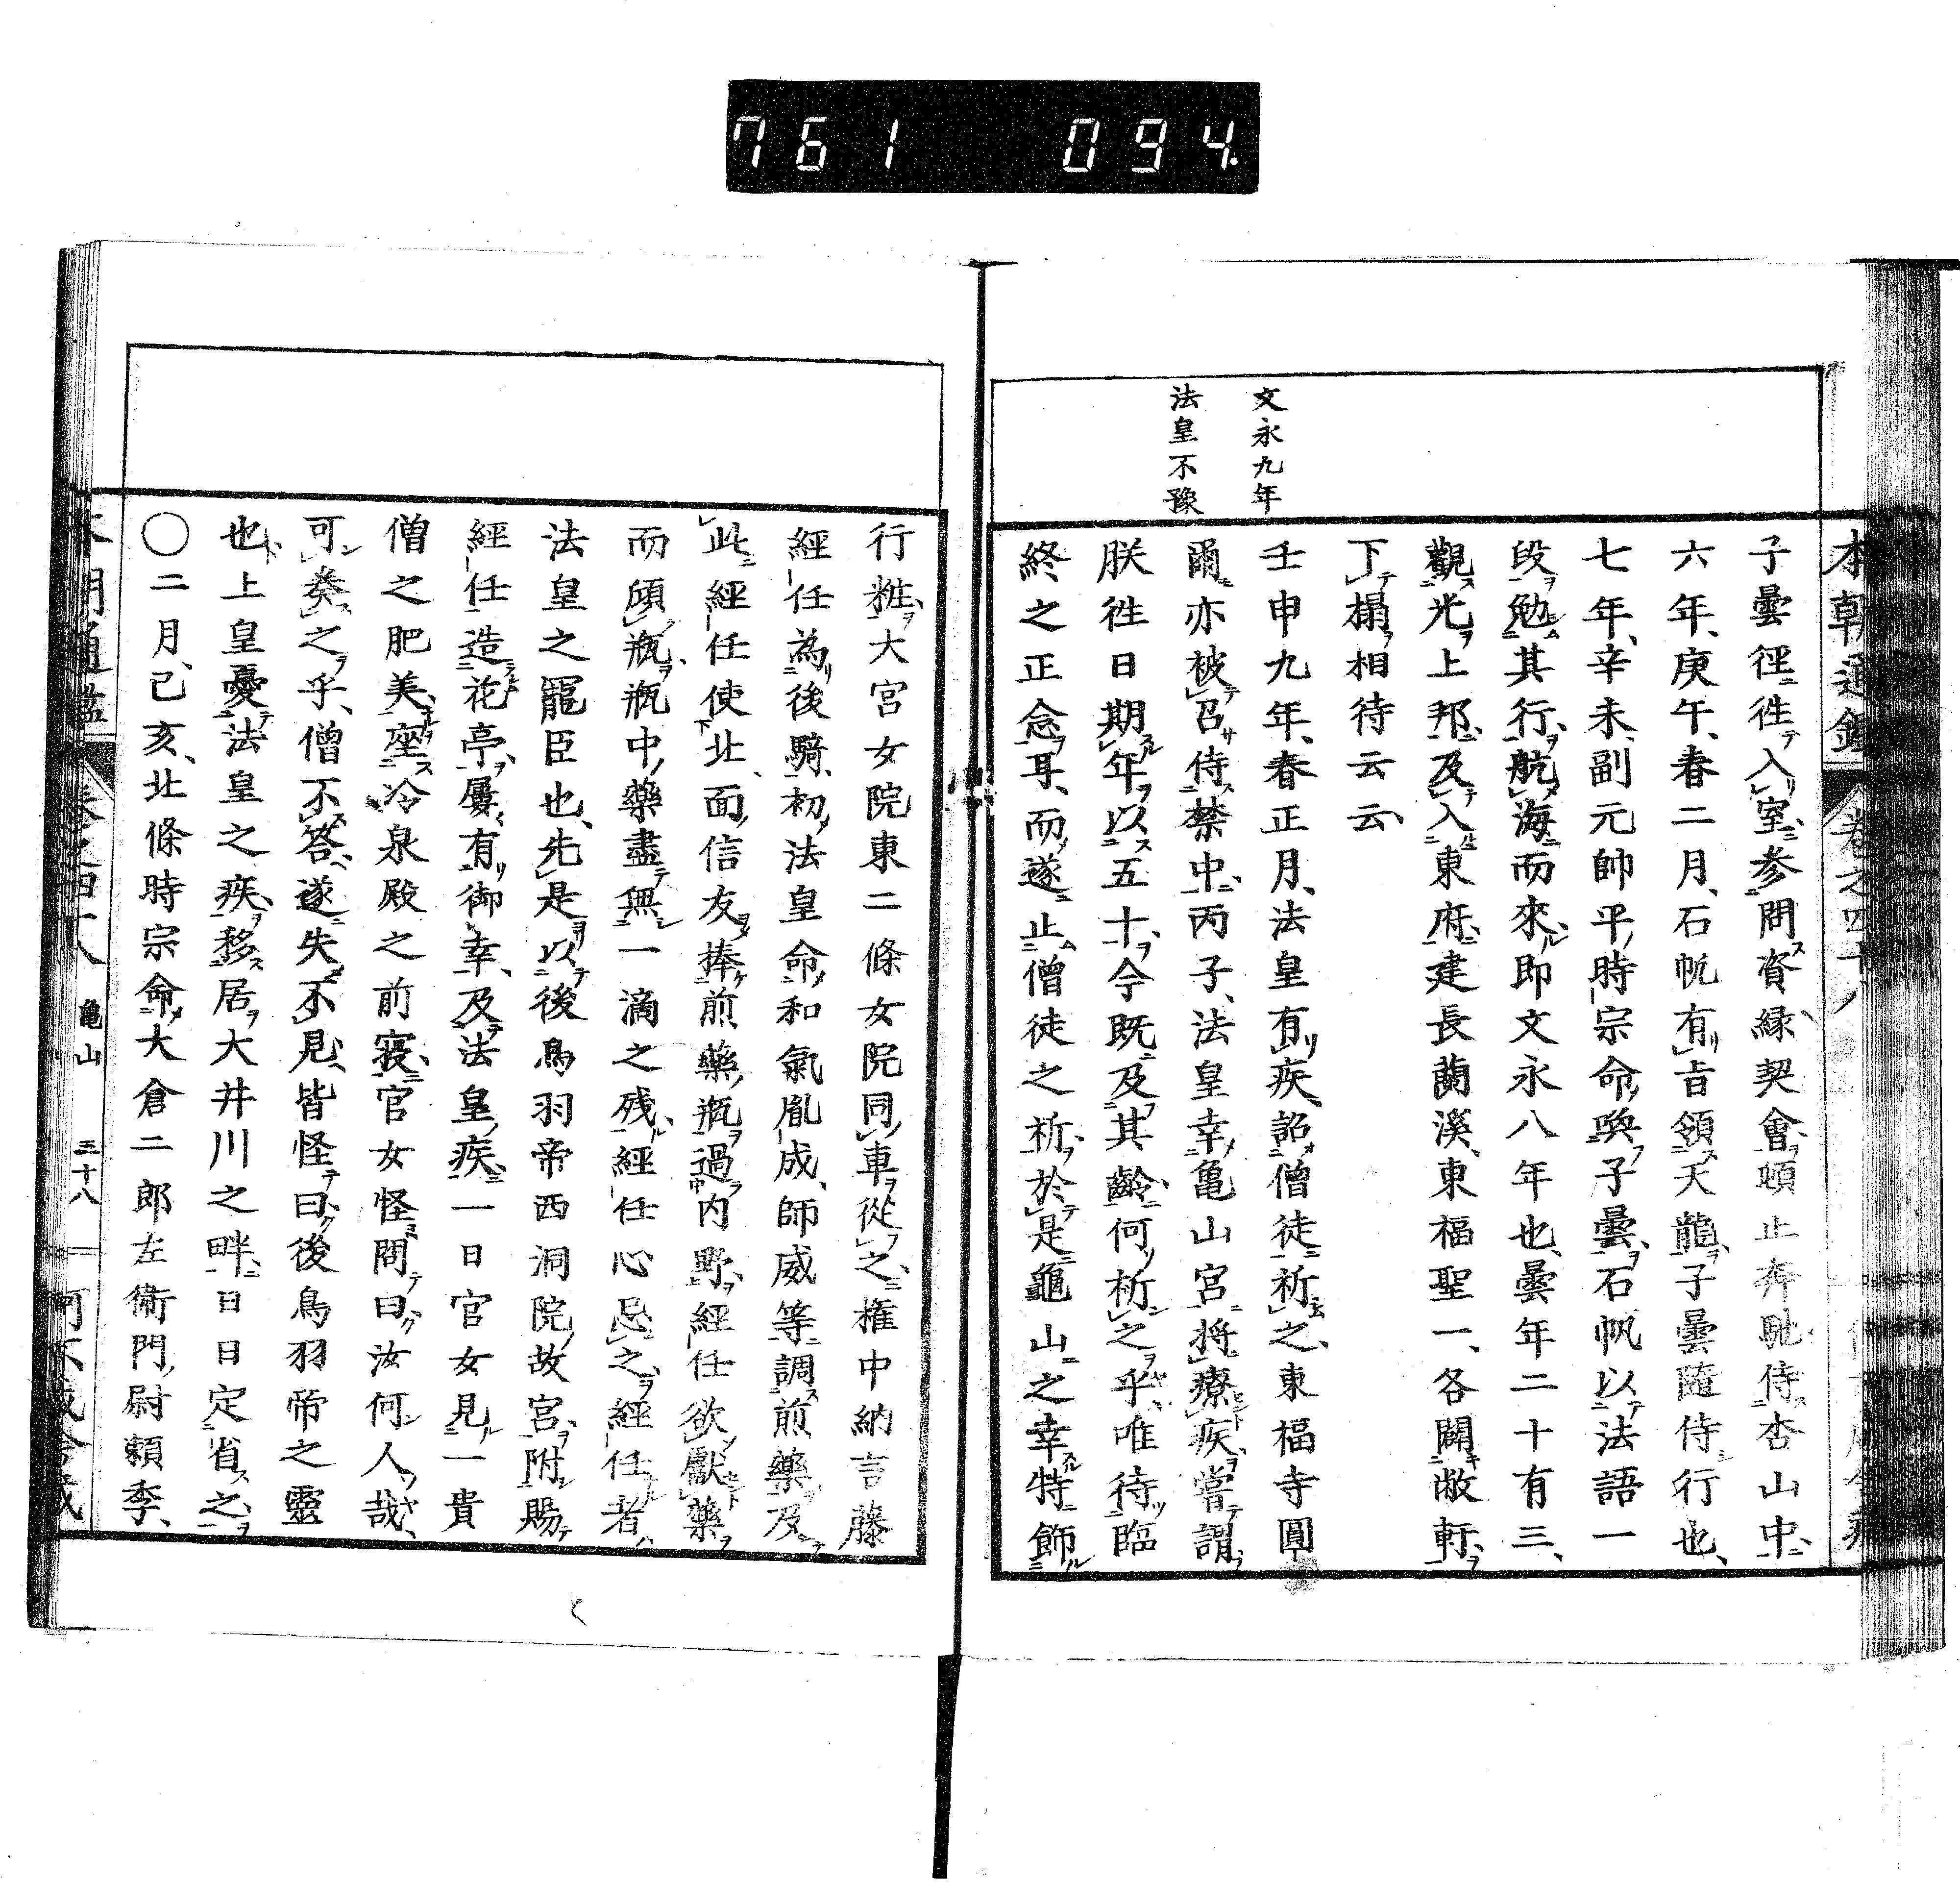 761 094.
文永九年
法皇不豫
子曇徑往入室参問資縁契會頓止奔馳侍杏山中
六年庚午春二月石帆有旨領天龍子曇隨侍行也
七年辛未副元帥平時宗命喚子曇石帆以法語一
段勉其行航海而來即文永八年也曇年二十有三
觀光上邦及入東府建長蘭溪東福聖一各闢敞軒
下榻相待云云
壬申九年春正月法皇有疾詔僧徒祈之東福寺圓
爾亦被召侍禁中丙子法皇幸亀山宮将療疾嘗謂
朕往日期年以五十今既及其齡何祈之乎唯待臨
終之正念耳而遂止僧徒之祈於是龜山之幸特飾
行粧大宮女院東二條女院同車從之権中納言藤
經任為後騎初法皇命和氣胤成師威等調煎藥及
此經任使北面信友捧煎藥瓶過内野經任欲獻藥
而傾瓶瓶中藥盡無一滴之残經任心忌之經任者
法皇之寵臣也先是以後鳥羽帝西洞院故宮附賜
經任造花亭屢有御幸及法皇疾一日官女見一貴
僧之肥美座冷泉殿之前寝官女怪問曰汝何人哉
可奏之乎僧不答遂失不見皆怪曰後鳥羽帝之靈
也上皇憂法皇之疾移居大井川之畔日日定省之
〇二月己亥北條時宗命大倉二郎左衛門尉頼季
本朝通鑑 卷之四十八 亀山 三十八